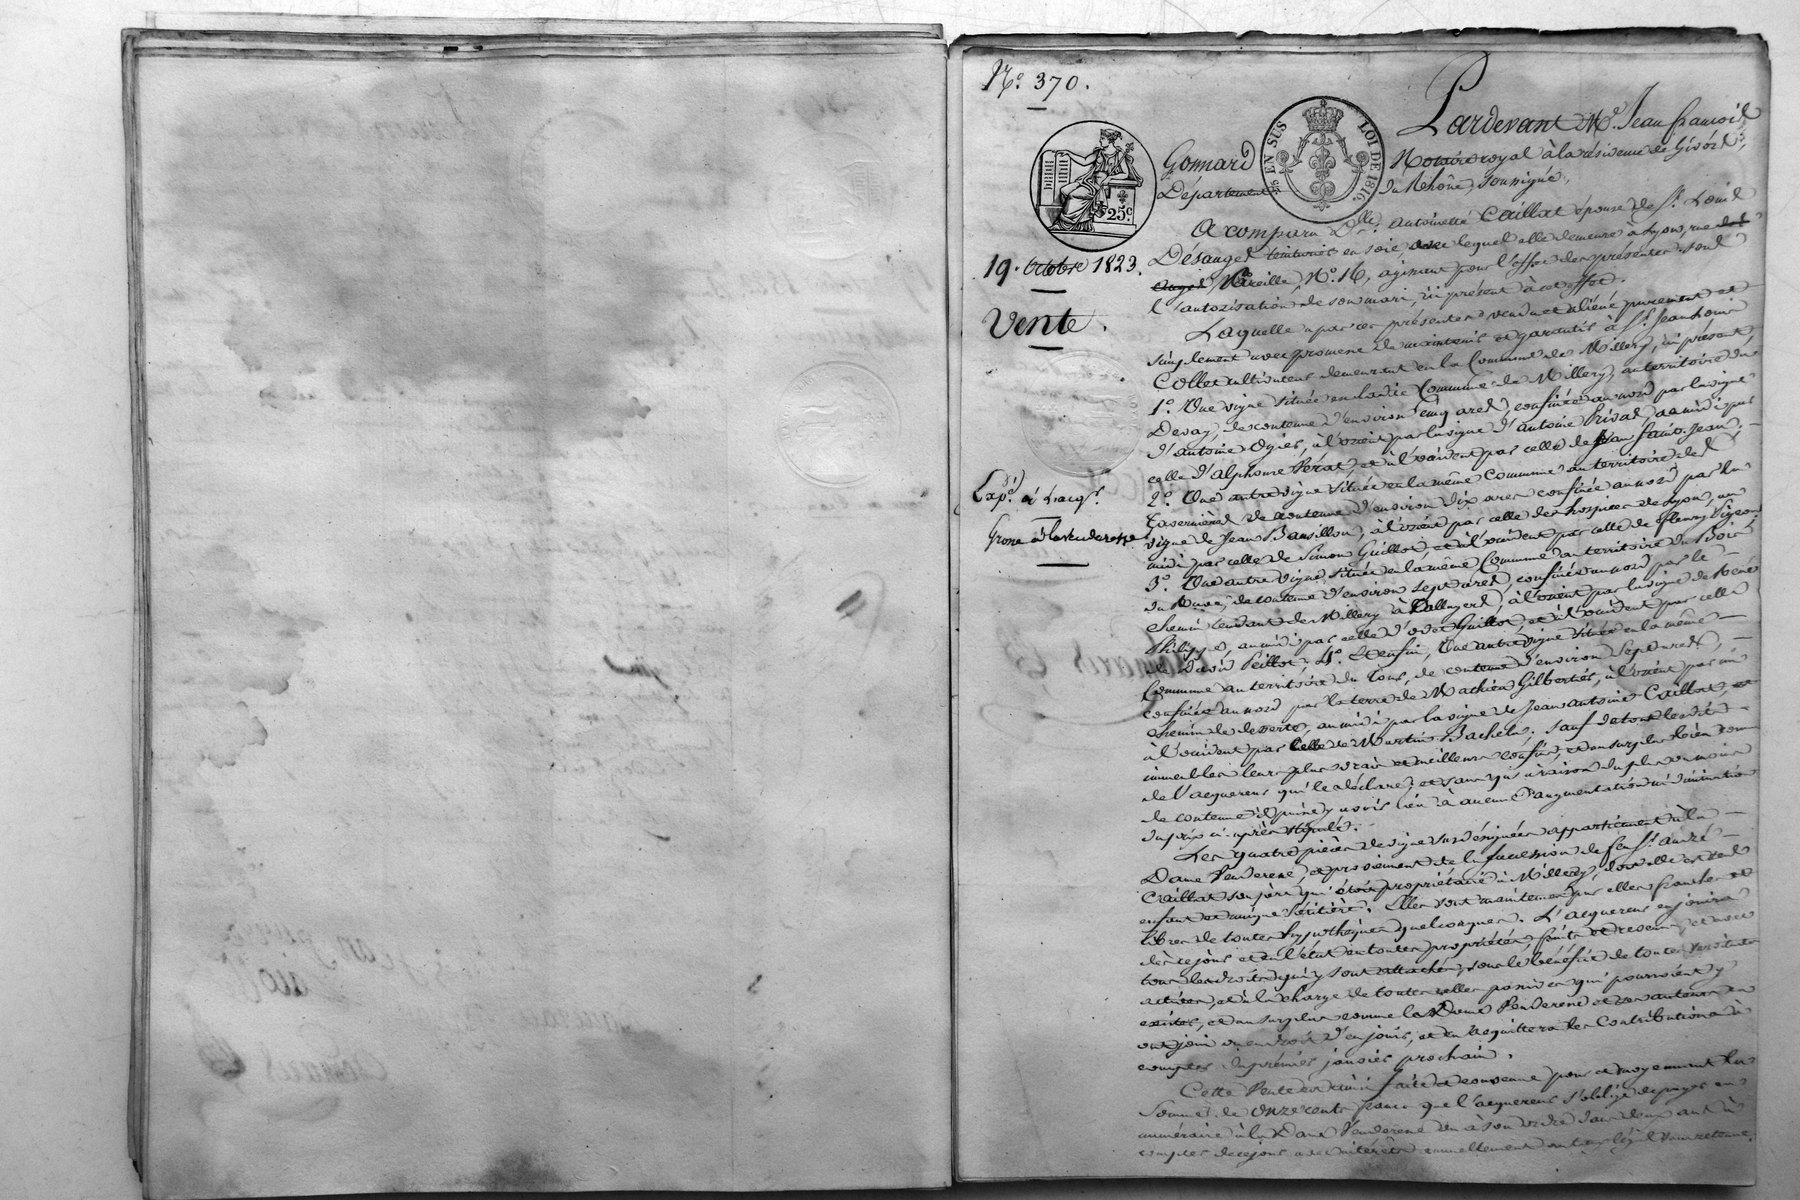 N.º 370.
Pardevant Mᵉ. Jean françois
Gonnard Notaire royal à la résidence de Givors,
Département du Rhône, soussigné,
EN SUS LOI DE 1816.
25ᶜ.
19. Octobre 1823.
Vente.
A comparu Dᵉˡˡᵉ. Antoinette Caillat épouse de Sʳ. Louis
Désanges teinturier en soie avec lequel elle demeure à Lyon, rue
Mireille, N.º 16, agissant pour l'effet des présentes sous
l'autorisation de son mari, ici présent à cet effet.
Laquelle a par ces présentes vendu et aliéné purement et
simplement avec promesse de maintenir et garantir à Sʳ. Jean Louis
Collet cultivateur demeurant en la Commune de Millery, ici présent,
1.º Une vigne située en ladite Commune de Millery, au territoire du
Devay, de contenue d'environ cinq ares, confinée au nord par la vigne
d'Antoine Ogier, à l'orient par la vigne d'Antoine Rivat au midi par
celle d'Alphonse Périat, et à l'occident par celle de Jean Saint-Jean;
2.º Une autre vigne située en la même Commune au territoire des
Tavernières de contenue d'environ dix ares confinée au nord par la
vigne de Jean Bansillon, à l'orient par celle des hospices de Lyon, au
midi par celle de Simon Guillot, et à l'occident par celle de fleury
Expᵉ. à l'acqʳ.
Grosse à la venderesse
3.º Une autre vigne située en la même Commune au territoire du Bois
du de contenue d'environ sept ares, confinée au nord par le
chemin tendant de Millery à à l'orient par la vigne de René
Philippe, au midi par celle d' Guillot, et à l'occident par celle
de David Peillot; 4.º Et enfin, Une autre vigne située en la même
Commune au territoire du de contenue d'environ sept ares,
confinée au nord par la terre de Mathieu Gilbertier, à l'orient par un
chemin de desserte, au midi par la vigne de Jean Antoine Caillat, et
à l'occident par celle de Martin Bachelu; sauf de tout lesdits
immeubles leurs plus vrais et meilleurs confins, et au surplus bien connus
de l'acquereur qui le a déclaré; et sans qu'à raison du plus ou moins
de contenue il puisse y avoir lieu à aucune augmentation ni diminution
du prix ci-après stipulé.
Les quatre pièces de vigne sus désignées appartiennent à la
Dame Venderesse, et proviennent de la succession de feu Sʳ. André
Caillat son père qui étoit propriétaire à Millery, dont elle est seule
enfant et unique héritière. Elles sont maintenues par elle franches et
libres de toutes hypothèques quelconques. L'acquereur en jouira
dès ce jour et en l'état en toute propriété, fruits et revenus, et avec
tous les droits qui y sont attachés, sous le bénéfice de toutes servitudes
actives, et à la charge de toutes celles passives qui pourroient y
exister, et au surplus comme la Dame Venderesse et ses auteurs en
ont joui ou eu droit d'en jouir, et en acquittera les Contributions à
compter du premier janvier prochain.
Cette Vente est ainsi faite et convenue pour et moyennant la
somme de onze cents francs que l'acquereur s'oblige de payer en
numéraire à la Dame Venderesse ou à son ordre dans deux ans à
compter de ce jour, avec intérêts annuellement au taux légal sans retenue.